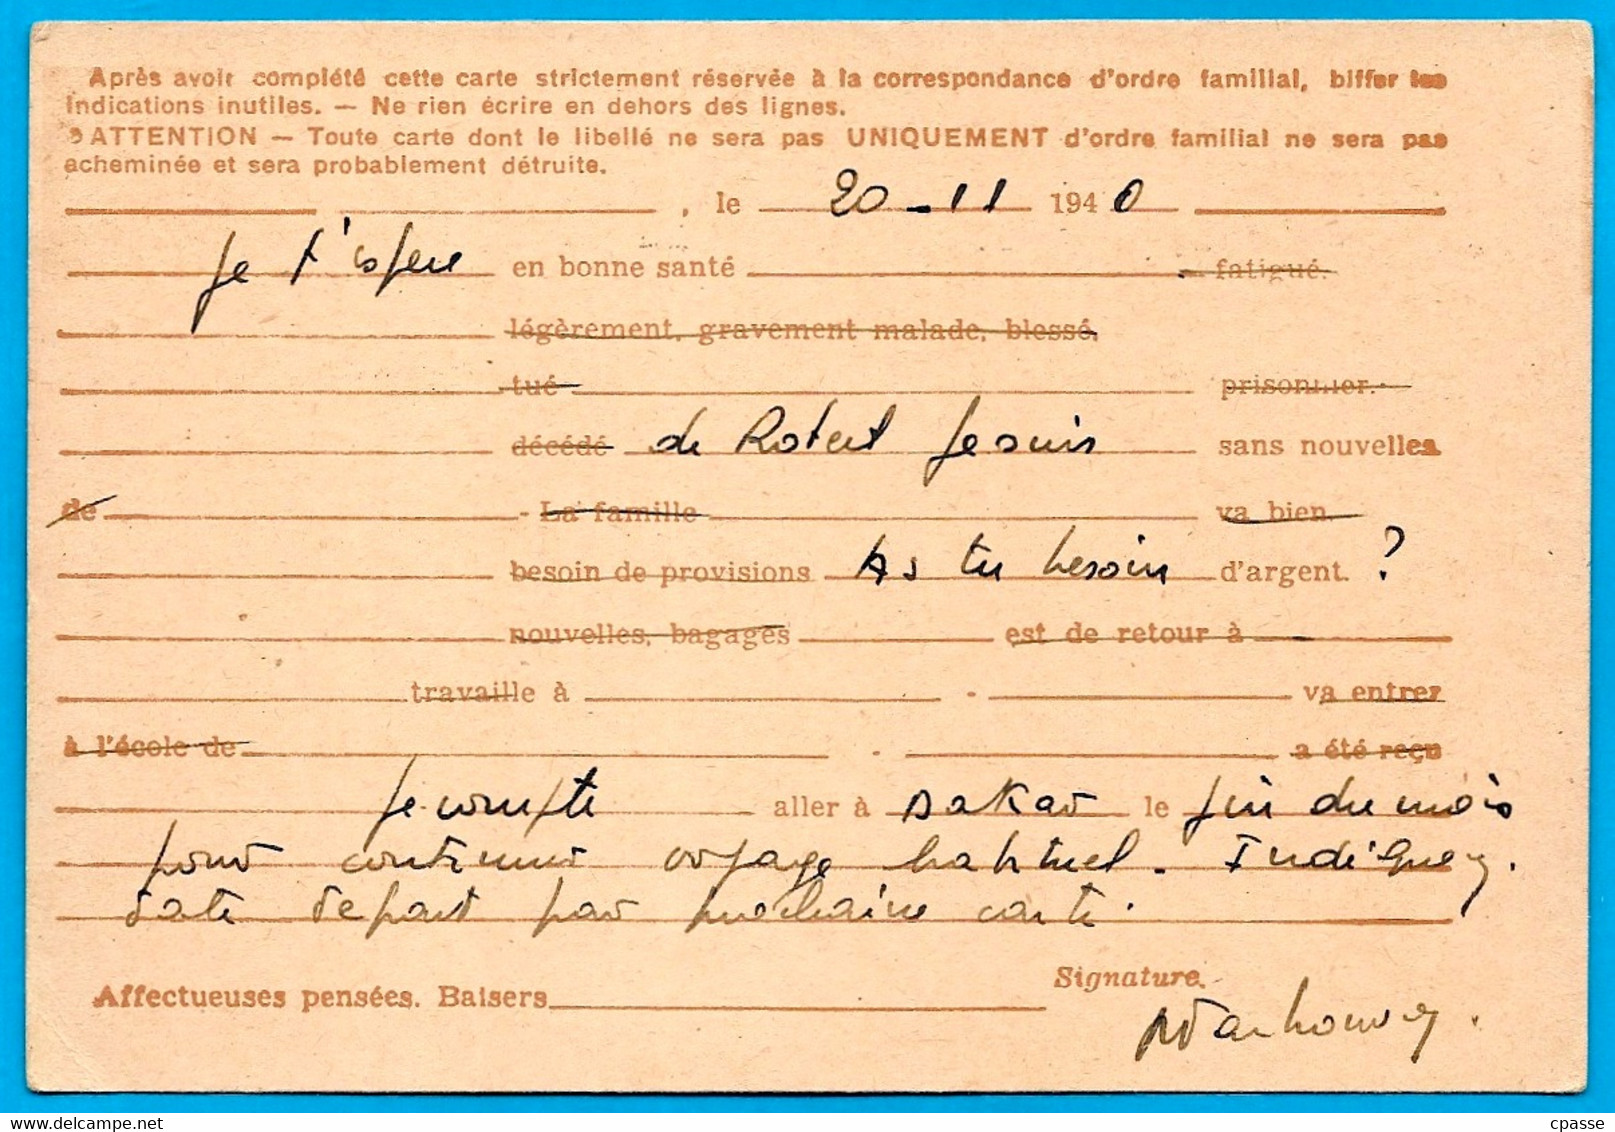 Après avoir complété cette carte strictement réservée à la correspondance d'ordre familial, biffer les
indications inutiles. — Ne rien écrire en dehors des lignes.
ATTENTION — Toute carte dont le libellé ne sera pas UNIQUEMENT d'ordre familial ne sera pas
acheminée et sera probablement détruite.
, le 20-11 1940
Je t'espere en bonne santé fatigué.
légèrement, gravement malade, blessé.
tué prisonnier.
décédé de Robert Je suis sans nouvelles
de - La famille va bien.
besoin de provisions As tu besoin d'argent. ?
nouvelles, bagages est de retour à
travaille à - va entrer
à l'école de - a été reçu
Je compte aller à Dakar le fin du mois
pour continuer voyage habituel. Indiquez.
date depart par prochaine carte.
Affectueuses pensées. Baisers Signature.
delcampe.net
cpasse